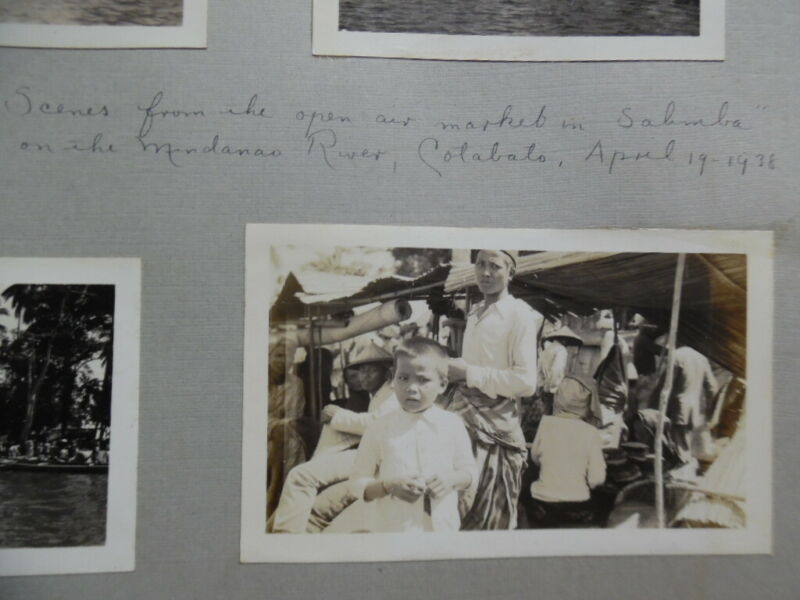 Scenes from the open air market in Salimba"
on the Mindanao River, Cotabato, April 19-1938